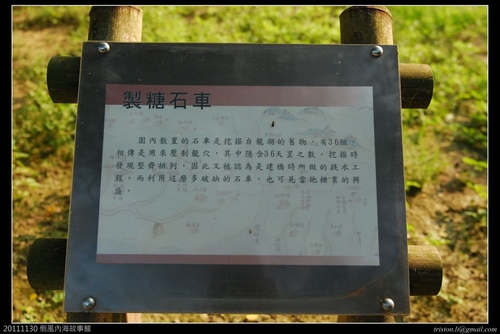 製糖石車
園內散置的石車是挖掘自龍湖的舊物，有36個，
相傳是用來壓制龍穴，其中隱含36天罡之數。挖掘時
發現整齊排列，因此又被認為是建橋時所做的跌水工
程。而利用這麼多破缺的石車，也可見當地糖業的興
盛。
20111130 倒風內海故事館
triston.li@gmail.com